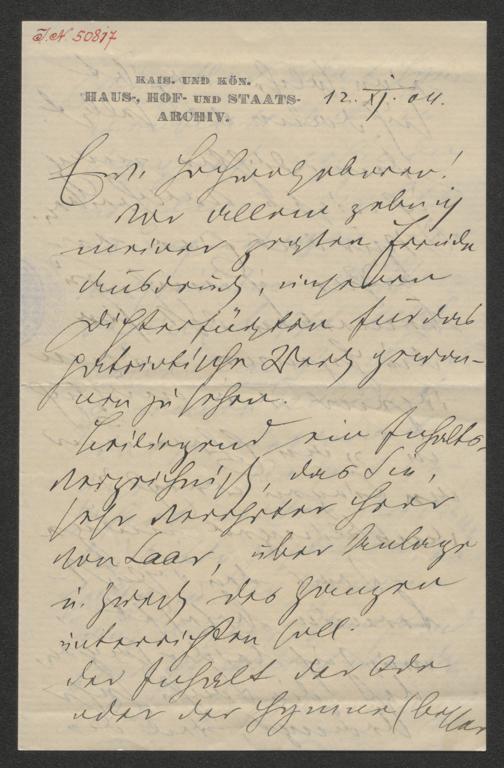 I.N. 50817
KAIS. UND KÖN.
HAUS-, HOF- UND STAATS-
ARCHIV.
12. XI. 04.
Euer Hochwolgeboren!
Vor allem gebe ich
meiner größten Freude
Ausdruck, unseren
Dichterfürsten für das
patriotische Werk gewon-
nen zu sehen.
Beiliegend ein Inhalts-
verzeichniß, das Sie,
sehr verehrter Herr
von Saar, über Anlage
u. Zweck des Ganzen
unterrichten soll.
Der Inhalt der Ode
oder der Hymne (besser